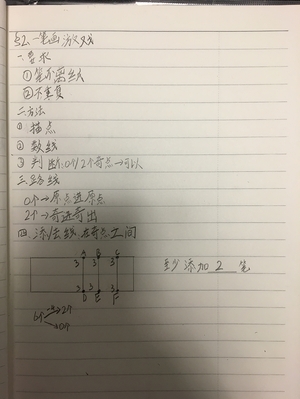 一笔画游戏
一、要求
①笔不离纸
②不重复
二、方法
①描点
②数线
③判断:0个/2个奇点→可以
三、路线
0个→原点进原点
2个→奇进奇出
四、添/去线:在奇点之间
A B C
3 3 3
3 3 3
D E F
至少添加 2 笔
6个→2个
→0个